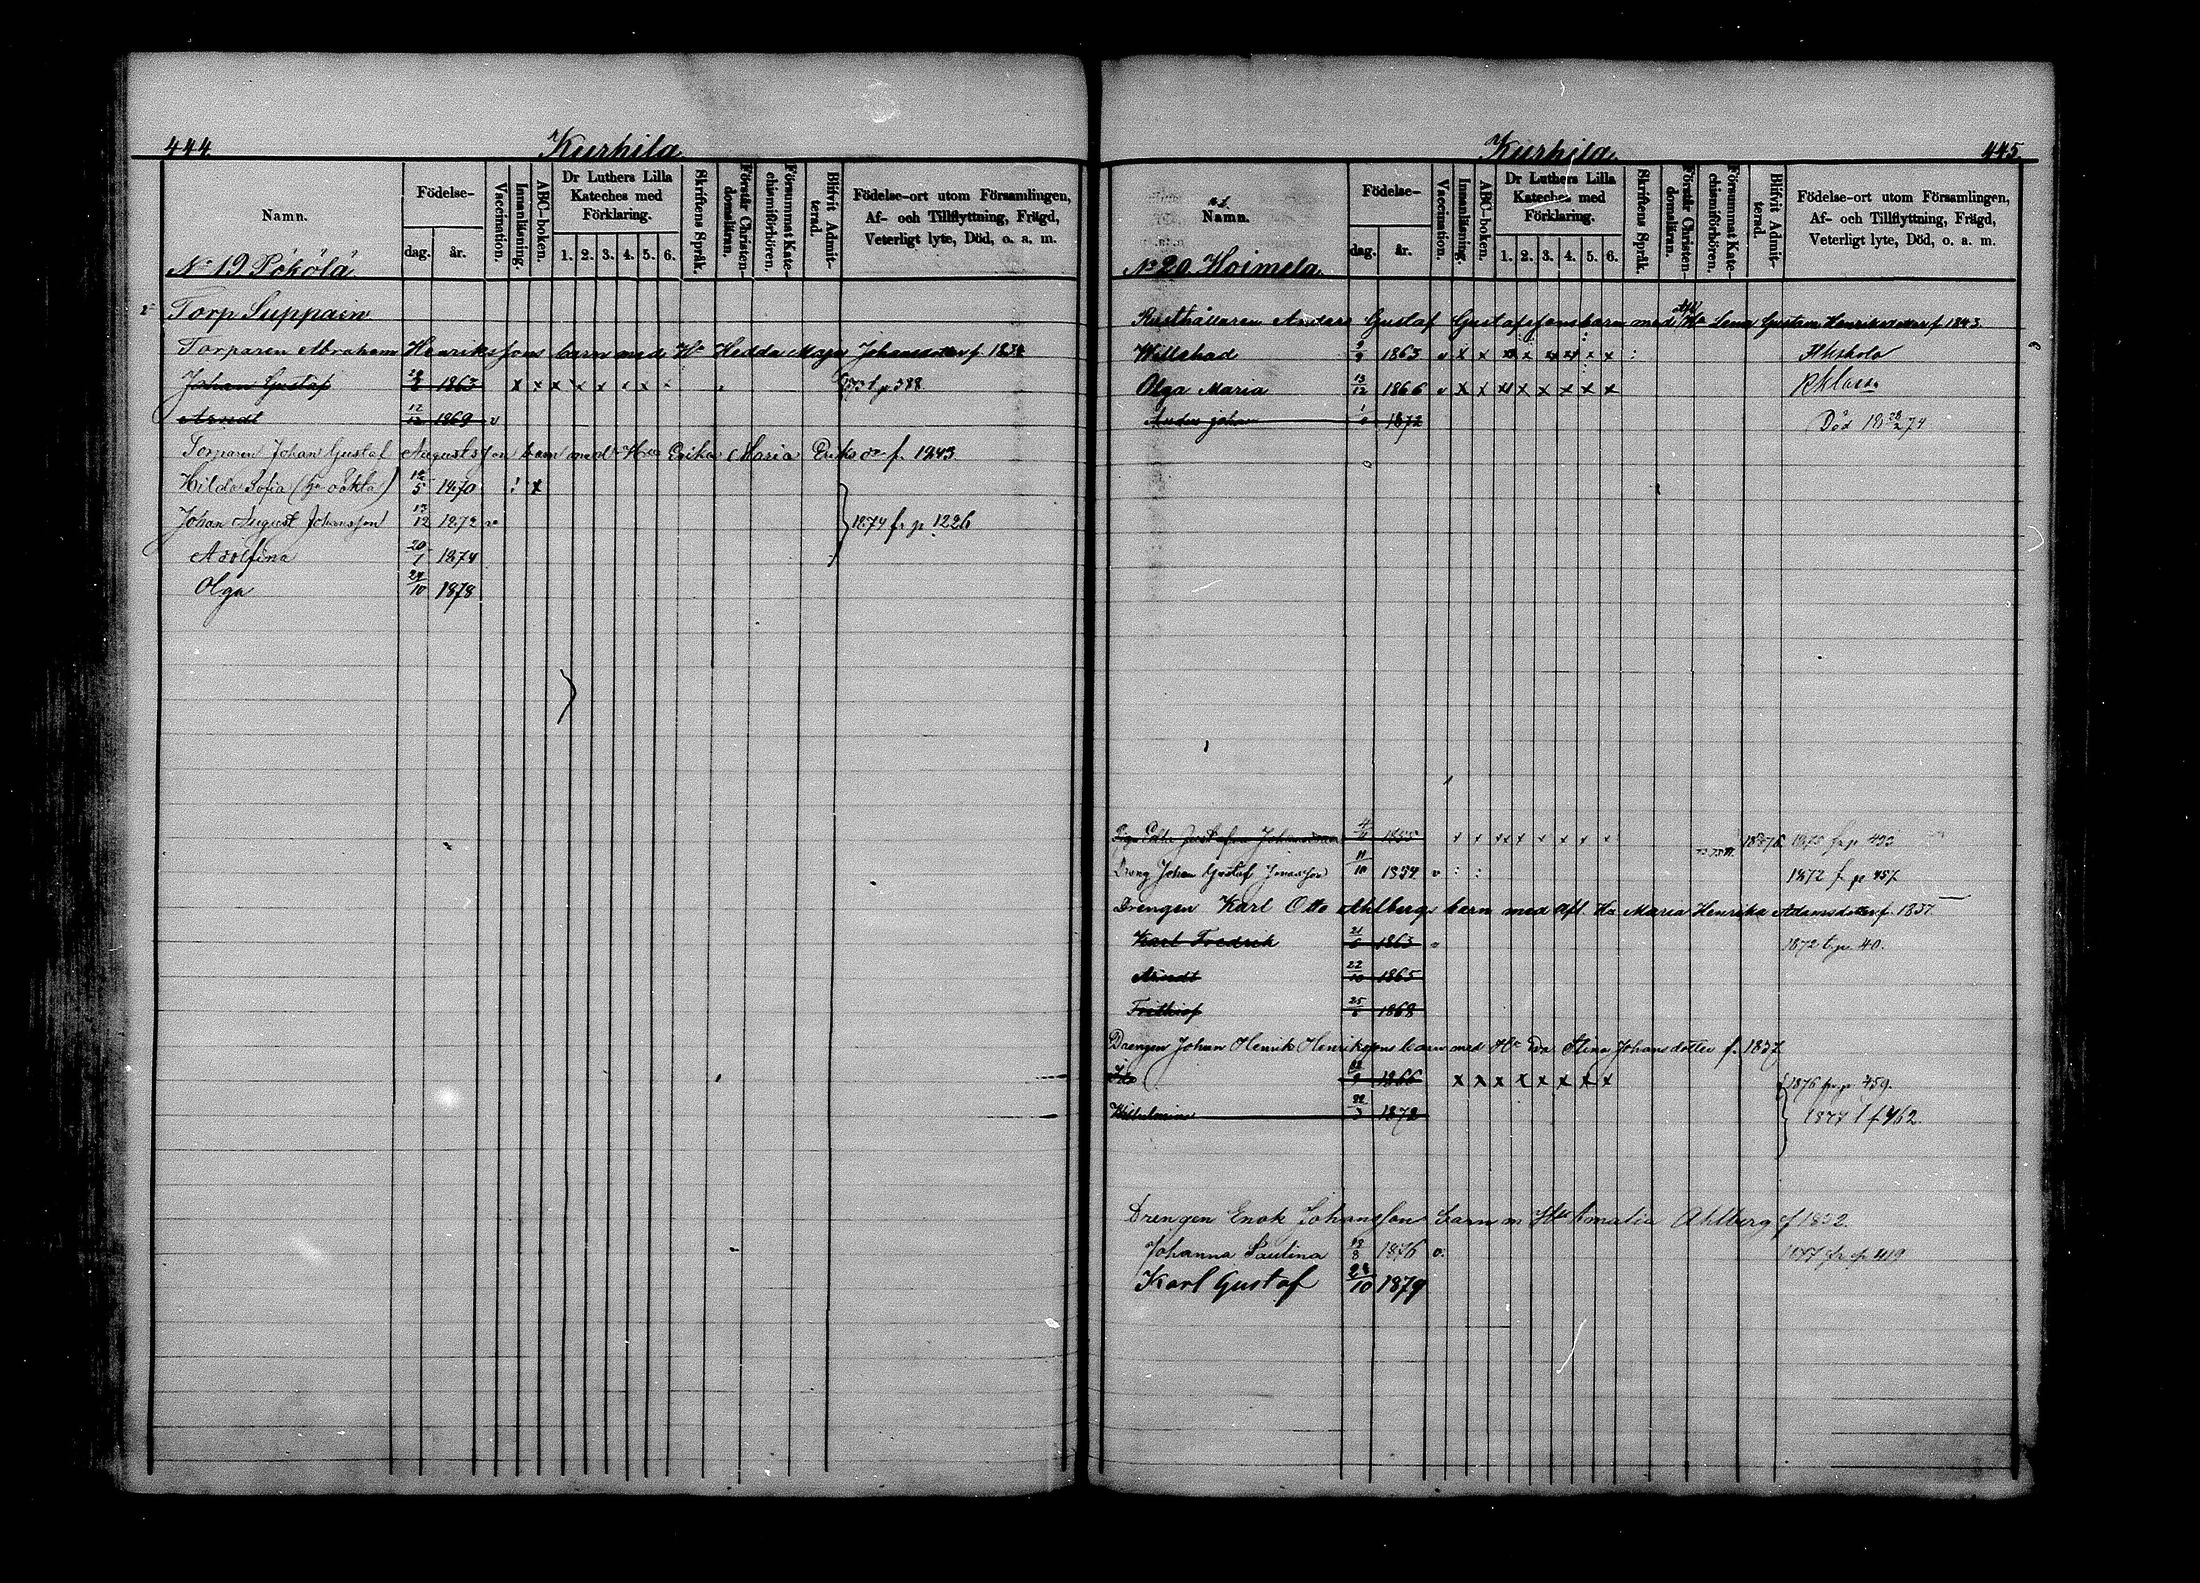 444.
Kurhila
Namn.
Födelse-
dag. år.
Vaccination.
Innanläsning.
ABC-boken.
Dr Luthers Lilla Kateches med Förklaring.
1. 2. 3. 4. 5. 6.
Skriftens Språk.
Förstår Christendomsläran.
Försummat Katechismiförhören.
Blifvit Admitterad.
Födelse-ort utom Församlingen, Af- och Tillflyttning, Frägd, Veterligt lyte, Död, o. a. m.
No 19 Pöhölä
Torp Suppain
Torparen Abraham Henrikssons barn med Ha Hedda Maja Johansdotter f. 1834
Johan Gustaf 1863 x x x x x x x x p 388
Arndt 12/12 1869 v
Torparen Johan Gustaf Augustsson barn med Hu Erika Maria Eriksdr f. 1843
Hilda Sofia 5 1870 : x
Johan August Johansson 13/12 1872 v 1874 fr p 1226
Adolfina 20/1 1874
Olga 24/10 1878
Kurhila
445.
Namn.
Födelse-
dag. år.
Vaccination.
Innanläsning.
ABC-boken.
Dr Luthers Lilla Kateches med Förklaring.
1. 2. 3. 4. 5. 6.
Skriftens Språk.
Förstår Christendomsläran.
Försummat Katechismiförhören.
Blifvit Admitterad.
Födelse-ort utom Församlingen, Af- och Tillflyttning, Frägd, Veterligt lyte, Död, o. a. m.
No 20 Hoimela
Rusthållaren Anders Gustaf Gustafssons barn med Ha Lena Gustava Henriksdotter f. 1843
Willehad 9/9 1863 v x x x x x x x x : Fkskola
Olga Maria 13/12 1866 v x x x x x x x x
Anders Johan 1872 Död
Johansdotter 1855 x x x x x x x x
Dreng Johan Gustaf 11/10 1854 v : : 1872 fr p 457
Drengen Karl Otto Ahlbergs barn med afl. Ha Maria Henrika Adamsdotter f. 1837
Karl Fredrik 21/6 1863 1872 t. p. 40.
Arndt 22/10 1865
Frithiof 25/6 1868
Drengen Johan Henrik Henrikssons barn med Ha Eva Stina Johansdotter f. 1837
Ida 1866 x x x x x x x x 1876 fr p. 459.
Wilhelmina 22/3 1872
Drengen Enok Johansson barn m Hu Amalia Ahlberg f 1852
Johanna Paulina 13/8 1876 v.
Karl Gustaf 28/10 1879